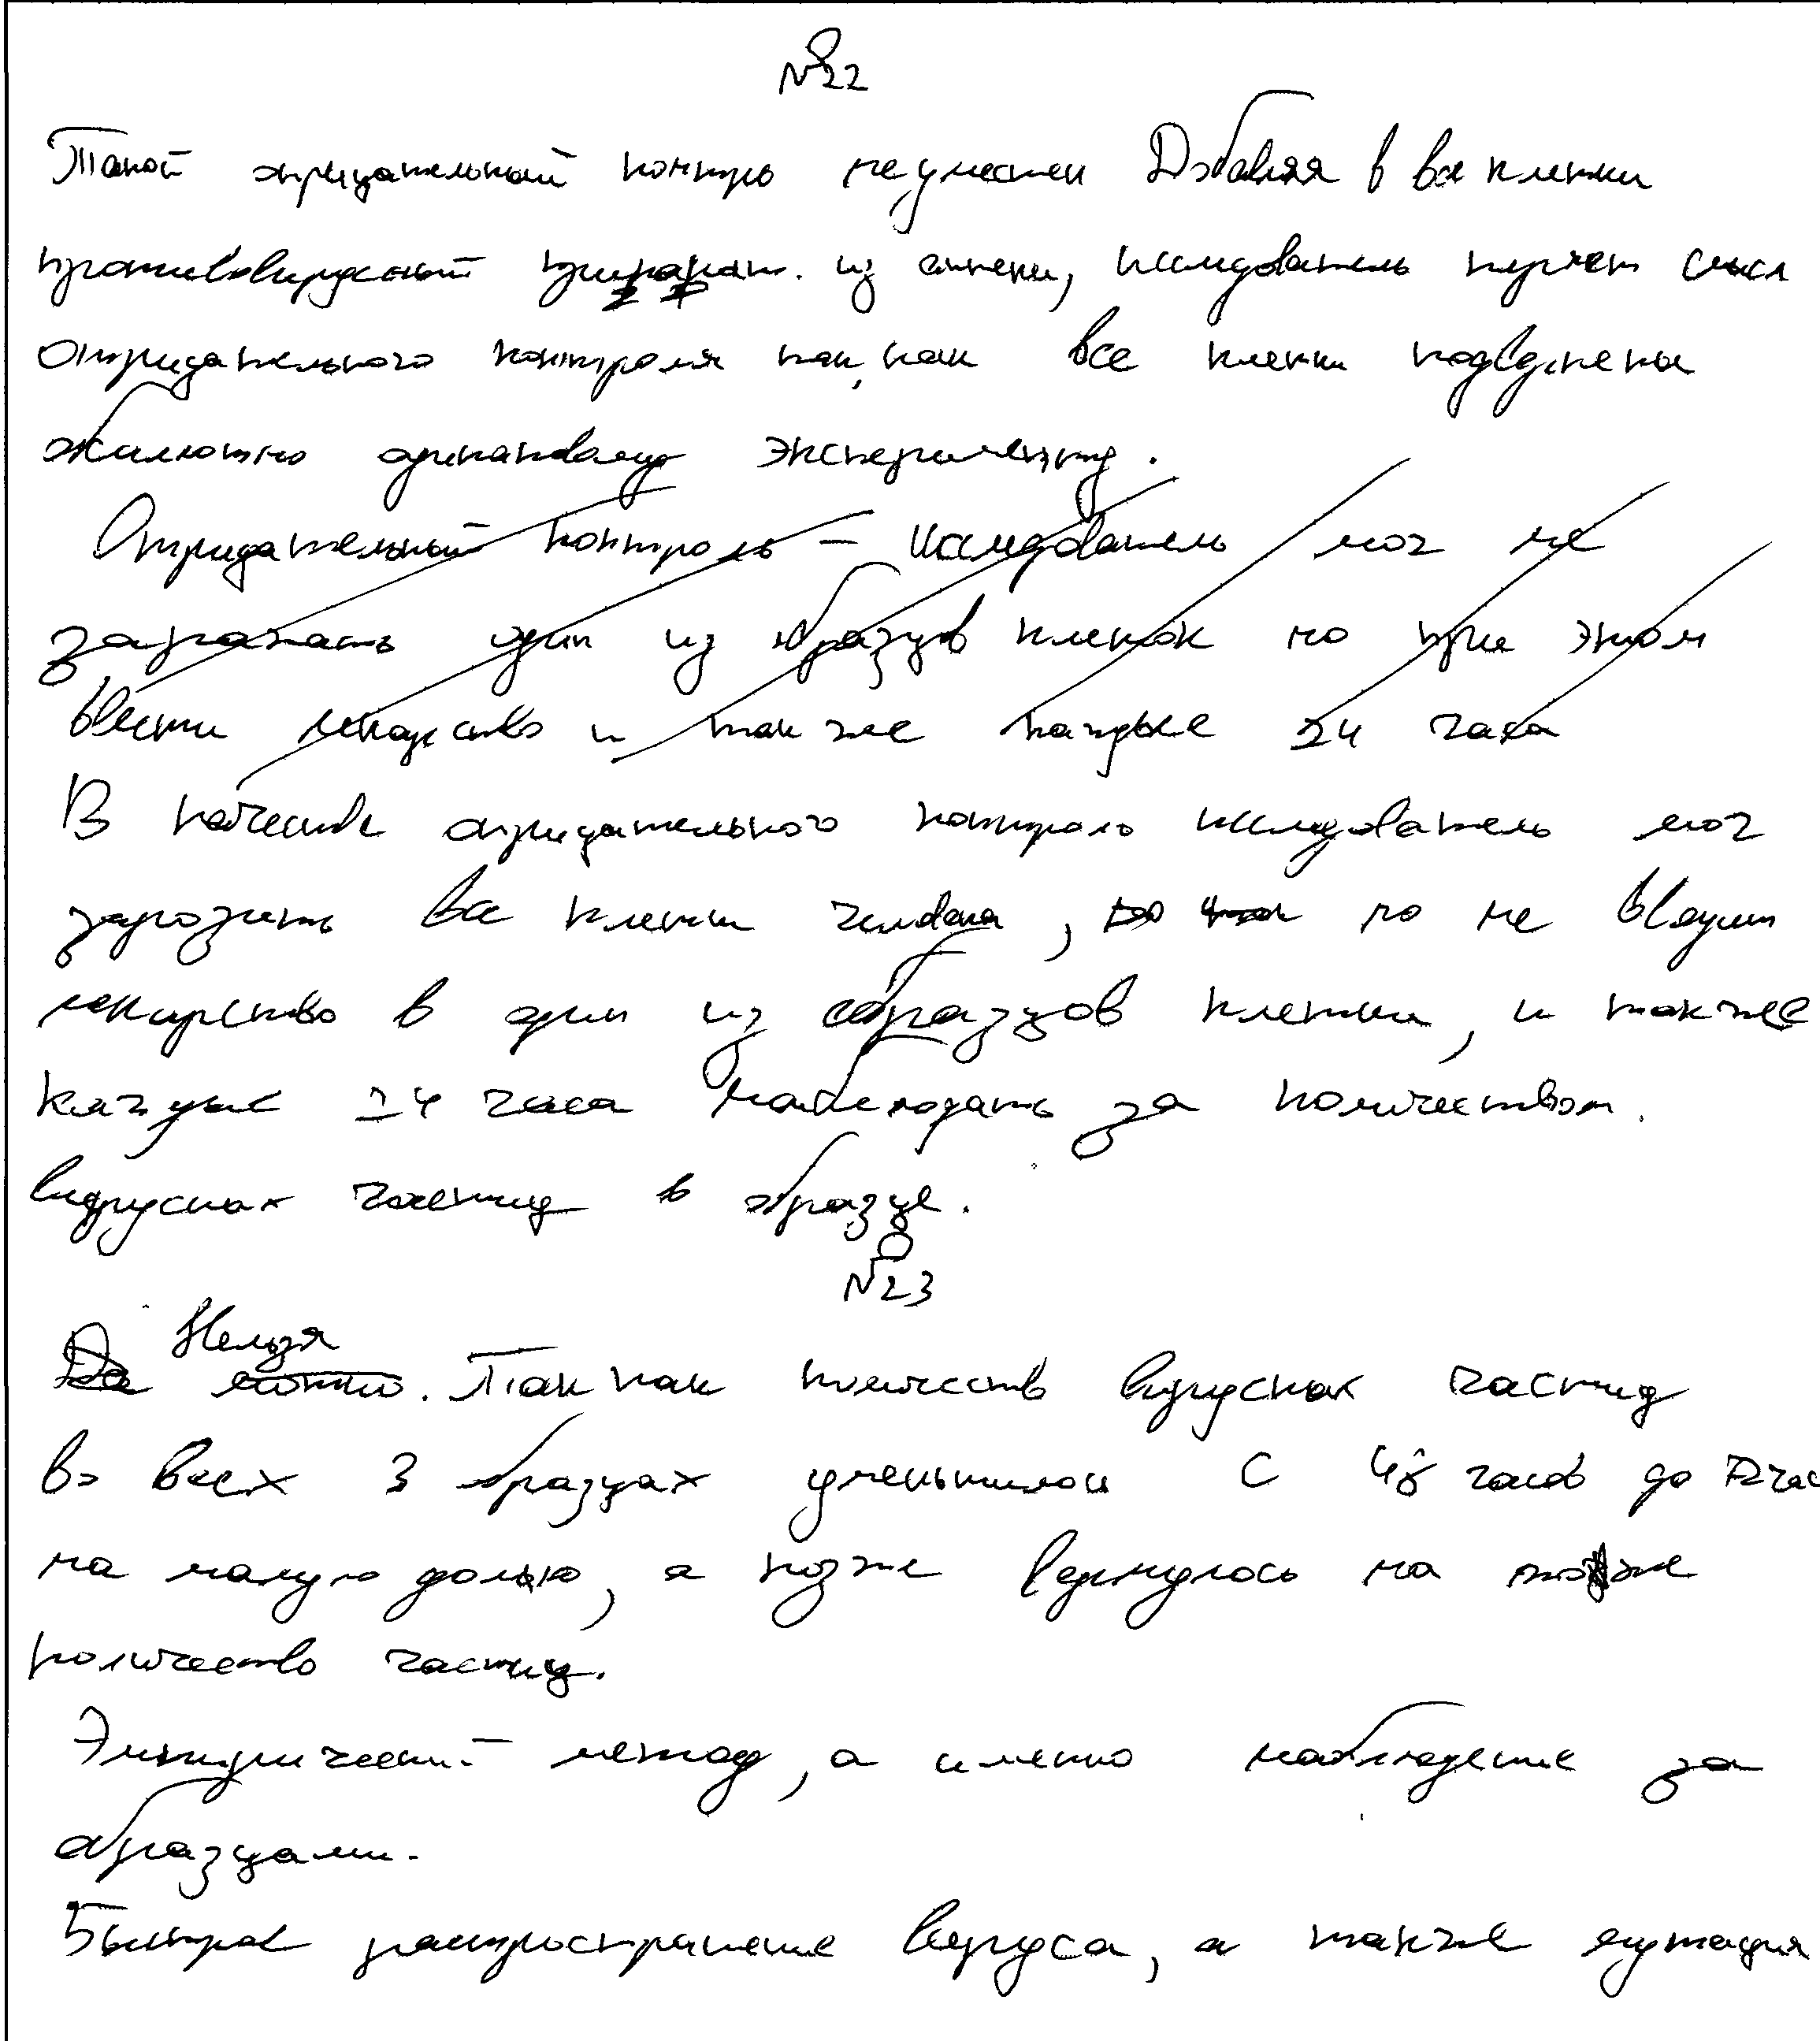 №22
Такой отрицательный контроль не уместен Добавляя в все клетки
противовирусный препарат. из аптеки, исследователь теряет смысл
отрицательного контроля так, как все клетки подвержены
абсолютно одинаковому эксперименту.
Отрицательный контроль – исследователь мог не
заражать один из образцов клеток но при этом
ввести лекарство и также каждые 24 часа
В качестве отрицательного контроль исследователь мог
заразить все клетки человека, но не вводить
лекарство в один из образцов клетки, и также
каждые 24 часа наблюдать за количеством.
вирусных частиц в образце.
№23
Да можно. Нельзя Так как количество вирусных частиц
во всех 3 образцах уменьшилось с 48 часов до 72 час
на малую долю, а позже вернулось на то же
количество частиц.
Эмпирический метод, а именно наблюдение за
образцами.
Быстрое распространение вируса, а также мутация